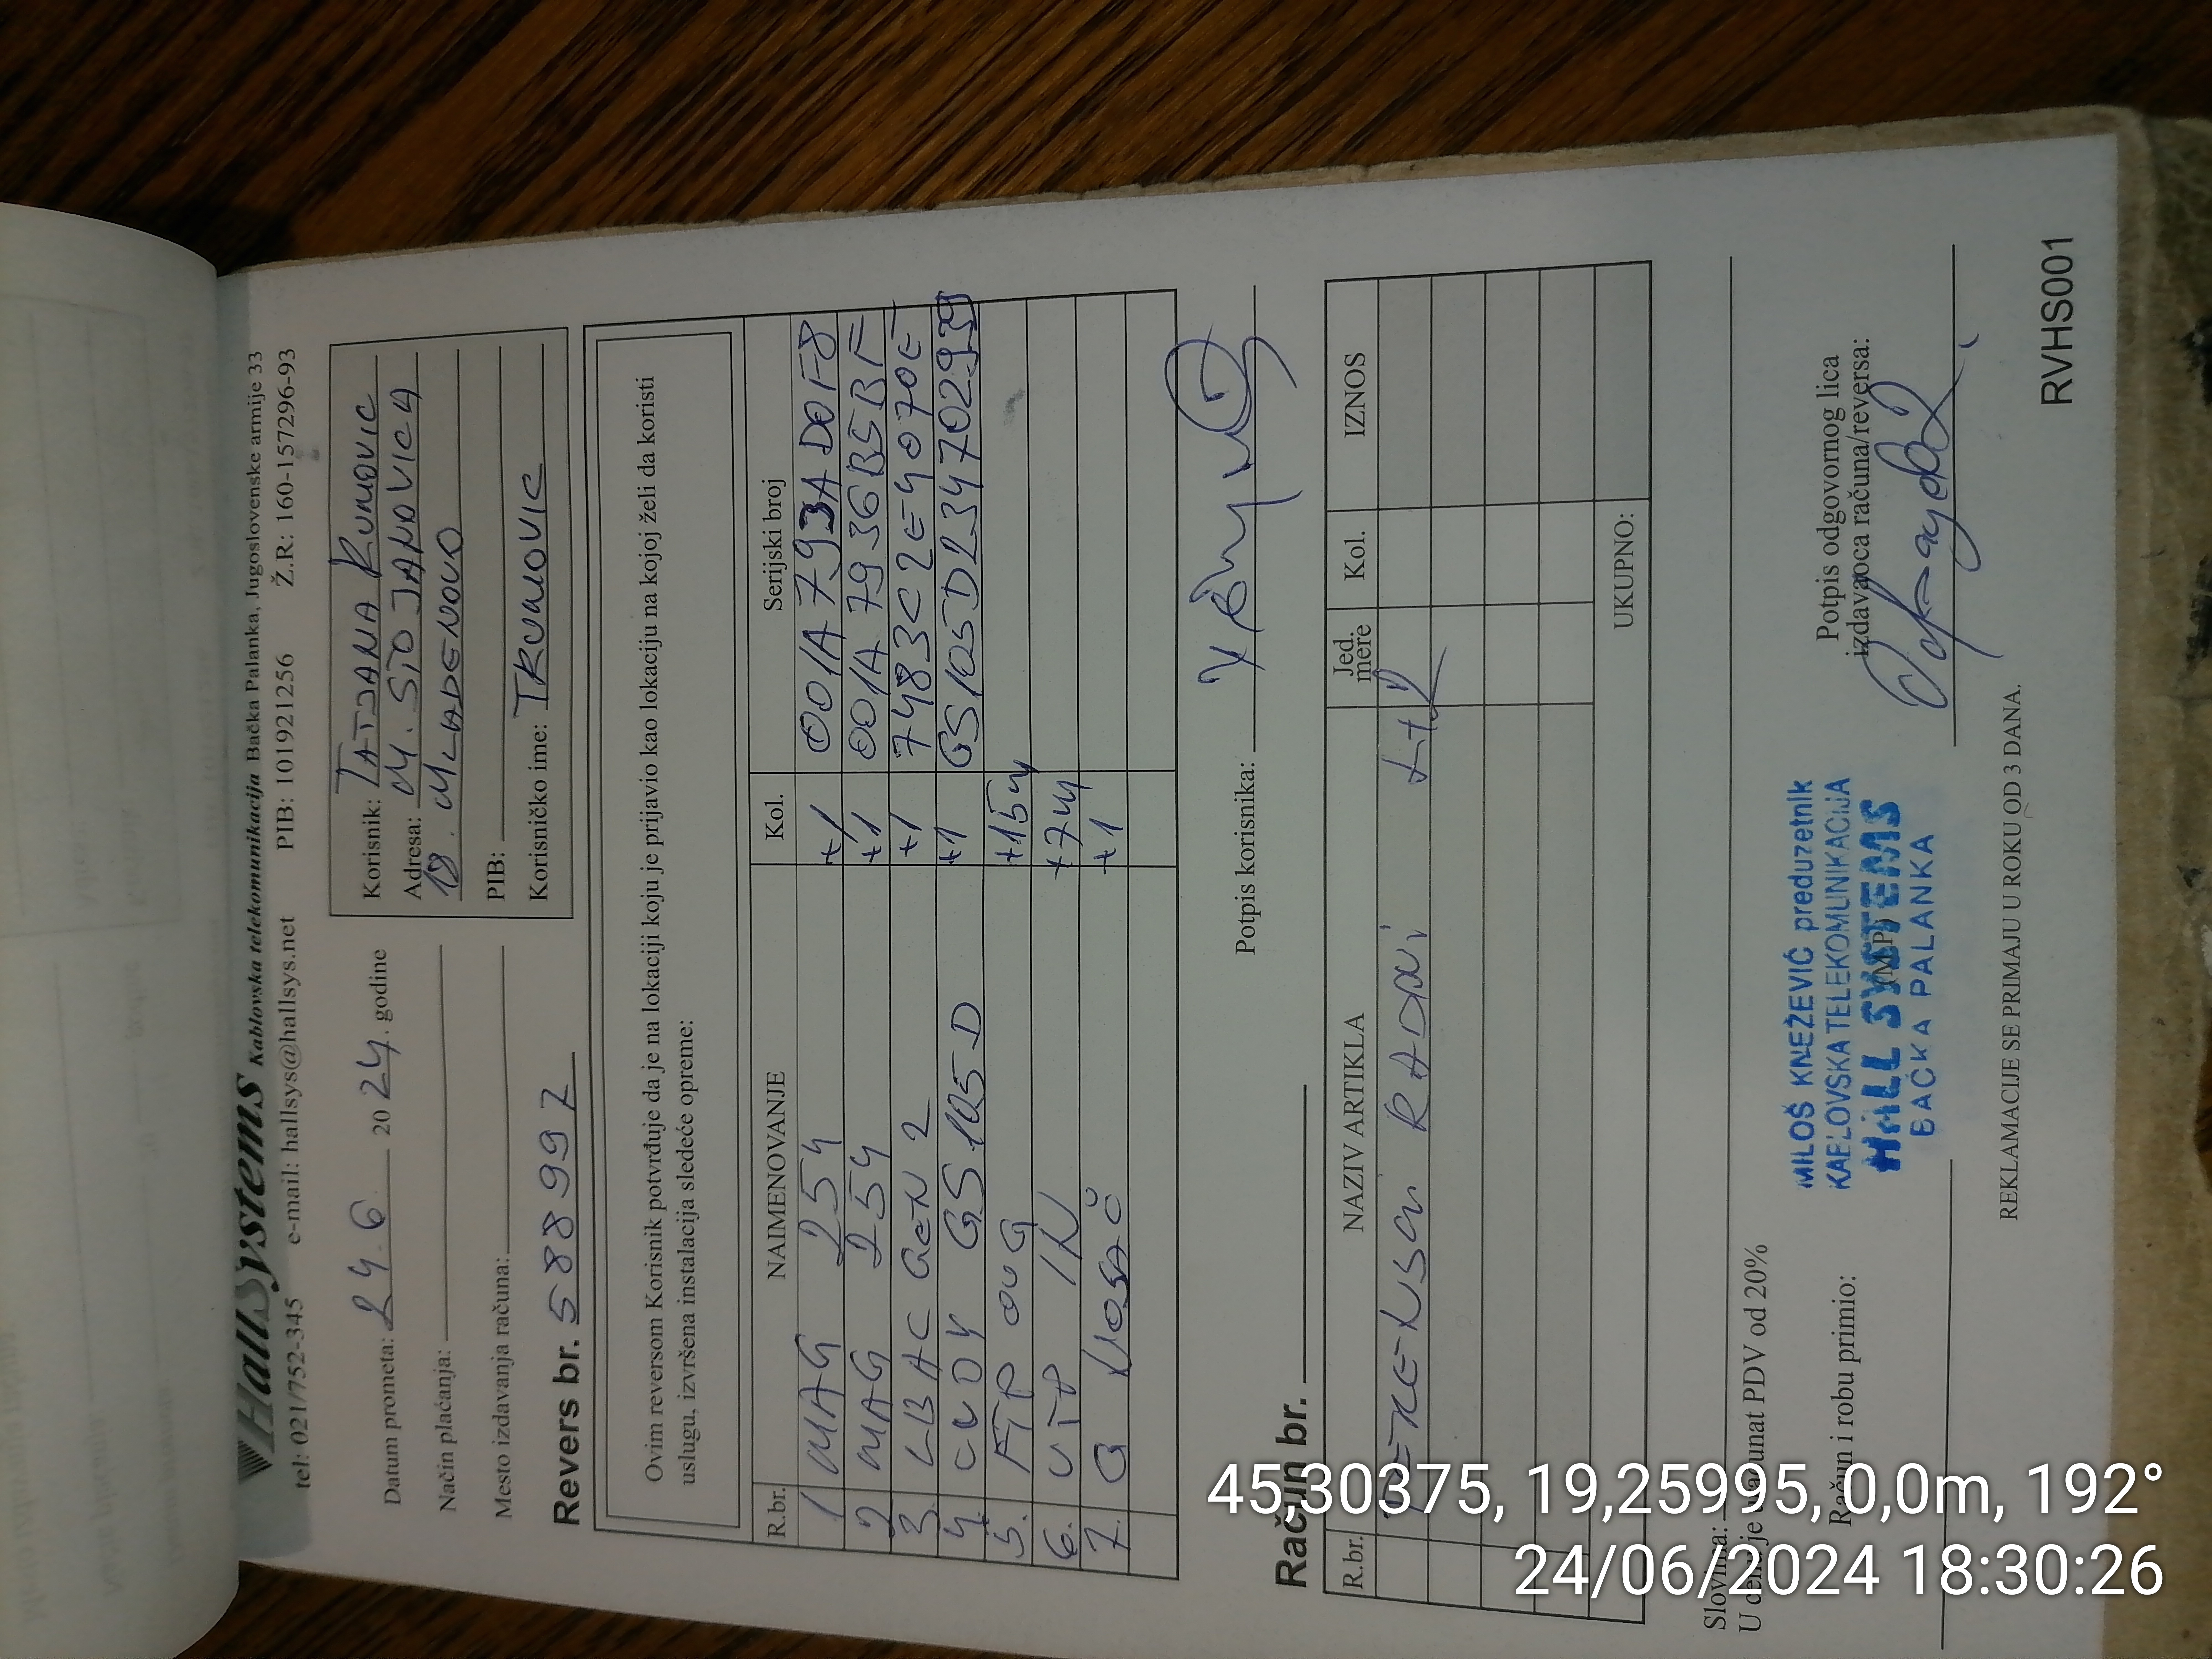 HallSystems Kablovska telekomunikacija Bačka Palanka, Jugoslovenske armije 33
tel: 021/752-345 e-mail: hallsys@hallsys.net PIB: 101921256 Ž.R: 160-157296-93
Datum prometa: 24.6. 2024. godine
Način plaćanja:
Mesto izdavanja računa:
Revers br. 588997
Korisnik: TATJANA RUNOVIC
Adresa: M. STOJANOVICA
18. MLADENOVO
PIB:
Korisničko ime: TRUNOVIC
Ovim reversom Korisnik potvrđuje da je na lokaciji koju je prijavio kao lokaciju na kojoj želi da koristi
uslugu, izvršena instalacija sledeće opreme:
R.br. NAIMENOVANJE Kol. Serijski broj
1 MAG 254 +1 001A793ADOF8
2 MAG 254 +1 001A7936B5BF
3. LBAC GEN 2 +1 7483C2E4070E
4. GS105D +1
5. FTP OUG +15m
6. UTP IN +7m
7. G NOSAČ +1
Potpis korisnika:
Račun br.
R.br. NAZIV ARTIKLA Jed. mere Kol. IZNOS
RADNI
UKUPNO:
Slovima:
U delu je računat PDV od 20%
Račun i robu primio:
MILOŠ KNEŽEVIĆ preduzetnik
KABLOVSKA TELEKOMUNIKACIJA
HALL SYSTEMS
BAČKA PALANKA
(M.P.)
Potpis odgovornog lica
izdavaoca računa/reversa:
REKLAMACIJE SE PRIMAJU U ROKU OD 3 DANA.
RVHS001
45,30375, 19,25995, 0,0m, 192°
24/06/2024 18:30:26